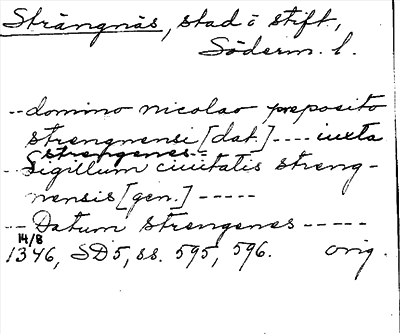 Strängnäs, stad o stift,
Söderm. l.
-- domino nicolao preposito
strengnensi [dat.] ---- iuxta
strengenes --
-- Sigillum ciuitatis streng-
nensis [gen.] -----
-- Datum strengenes -----
14/8
1346, SD5, ss. 595, 596. orig.